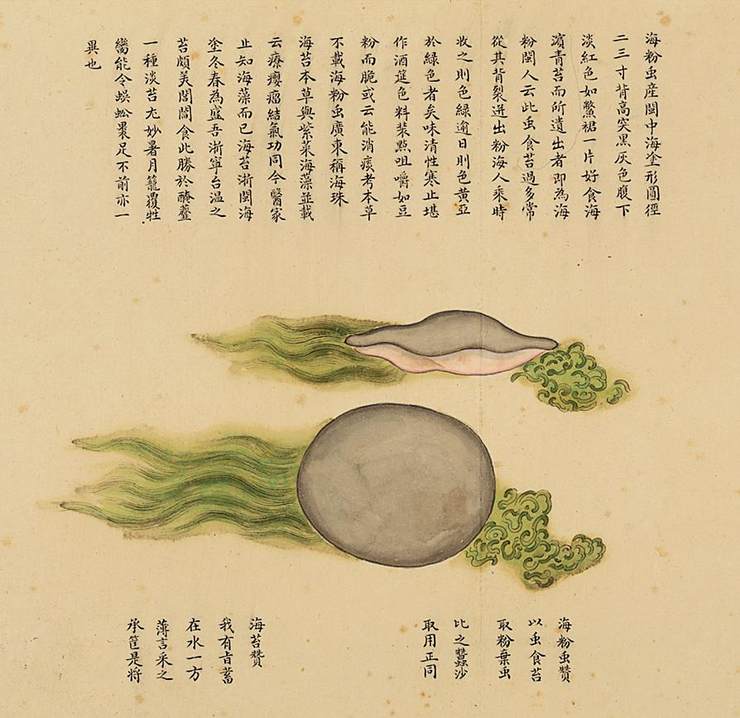 海粉虫產閩中海塗形圓徑
二三寸背高突黑灰色腹下
淡紅色如鱉裙一片好食海
濱青苔而所遺出者即為海
粉閩人云此虫食苔過多常
從其背裂迸出粉海人乘時
收之則色綠逾日則色黃亞
於綠色者矣味清性寒止堪
作酒筵色料裝點咀嚼如豆
粉而脆或云能消痰考本草
不載海粉虫廣東稱海珠
海苔本草與紫菜海藻並載
云療癭瘤結氣功同今醫家
止知海藻而已海苔浙閩海
塗冬春為盛吾浙寧台溫之
苔頗美閩閩食此勝於醃虀
一種淡苔尤妙暑月籠覆牲
臠能令蜈蚣裹足不前亦一
異也
海粉虫贊
以虫食苔
取粉棄虫
比之蠶沙
取用正同
海苔贊
我有旨蓄
在水一方
薄言采之
承筐是將